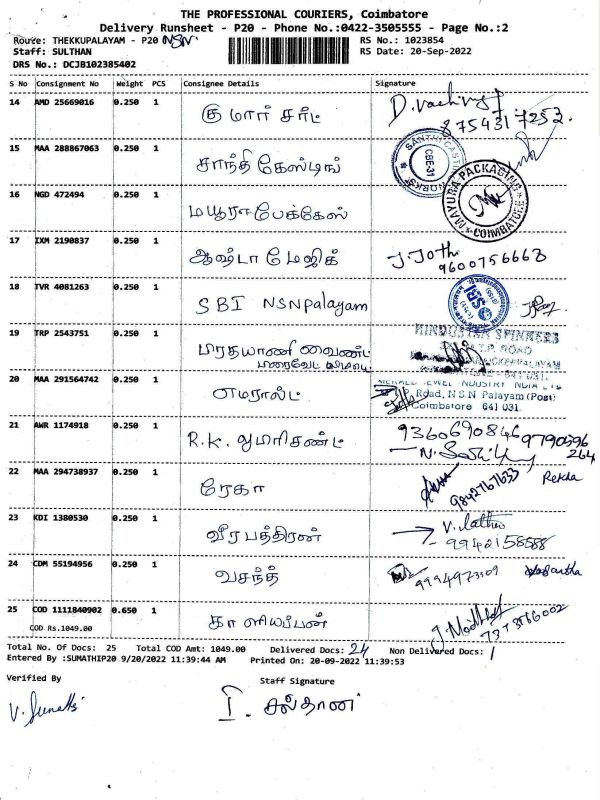 THE PROFESSIONAL COURIERS, Coimbatore
Delivery Runsheet - P20 - Phone No.:0422-3505555 - Page No.:2
Route: THEKKUPALAYAM - P20 NSN. RS No.: 1023854
Staff: SULTHAN RS Date: 20-Sep-2022
DRS No.: DCJB102385402
S No Consignment No Weight PCS Consignee Details Signature
14 AMD 25669016 0.250 1 குமார் சர்ட்
8754317252.
15 MAA 288867063 0.250 1 சாந்தி கேஸ்டிங் CBE-31
16 NGD 472494 0.250 1 மயூரா பேக்கேஸ் MAYURA PACKAGING COIMBATORE
17 IXM 2190837 0.250 1 ஆஷ்டா மேஜிக் J. Jothi
9600756663
18 TVR 4081263 0.250 1 SBI NSNpalayam SBI
19 TRP 2543751 0.250 1 HINDUSTAN SPINNERS
ROAD
641 031.
20 MAA 291564742 0.250 1 எமரால்ட் JEWEL INDUSTRY INDIA LTD
Road, N.S.N Palayam (Post)
Coimbatore 641 031.
21 AWR 1174918 0.250 1 R.K. 9360690846 9790596
264
22 MAA 294738937 0.250 1 ரேகா 9842767633 Rekha
23 KDI 1380530 0.250 1 வீரபத்திரன்
9942158588
24 CDM 55194956 0.250 1 வசந்த் 9994973109 Vasantha
25 COD 1111840902 0.650 1 காளியப்பன்
COD Rs.1049.00 7373566002
Total No. Of Docs: 25 Total COD Amt: 1049.00 Delivered Docs: 24 Non Delivered Docs: 1
Entered By :SUMATHIP20 9/20/2022 11:39:44 AM Printed On: 20-09-2022 11:39:53
Verified By Staff Signature